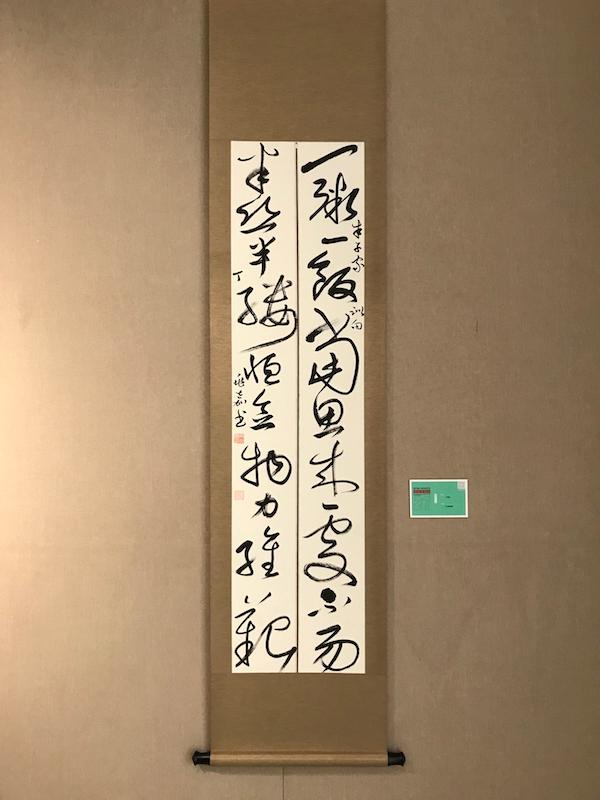 一粥一飯當思來處不易
朱子家訓句
半絲半縷恒念物力維艱